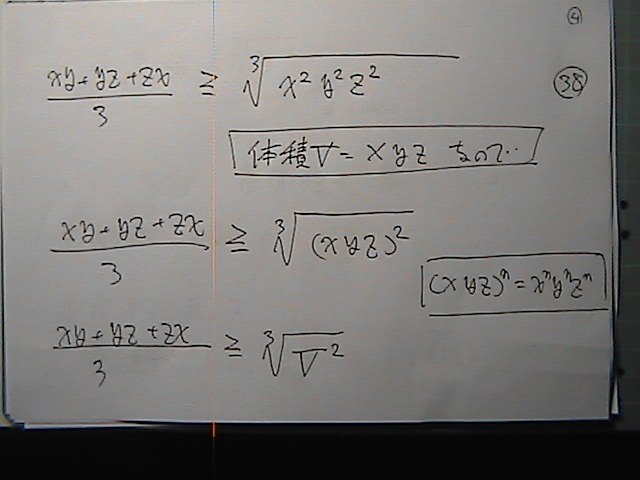 ④
(xy+yz+zx)/3 ≧ ∛(x²y²z²)
㊳
体積V=xyz なので‥
(xy+yz+zx)/3 ≧ ∛((xyz)²)
(xyz)ⁿ=xⁿyⁿzⁿ
(xy+yz+zx)/3 ≧ ∛(V²)